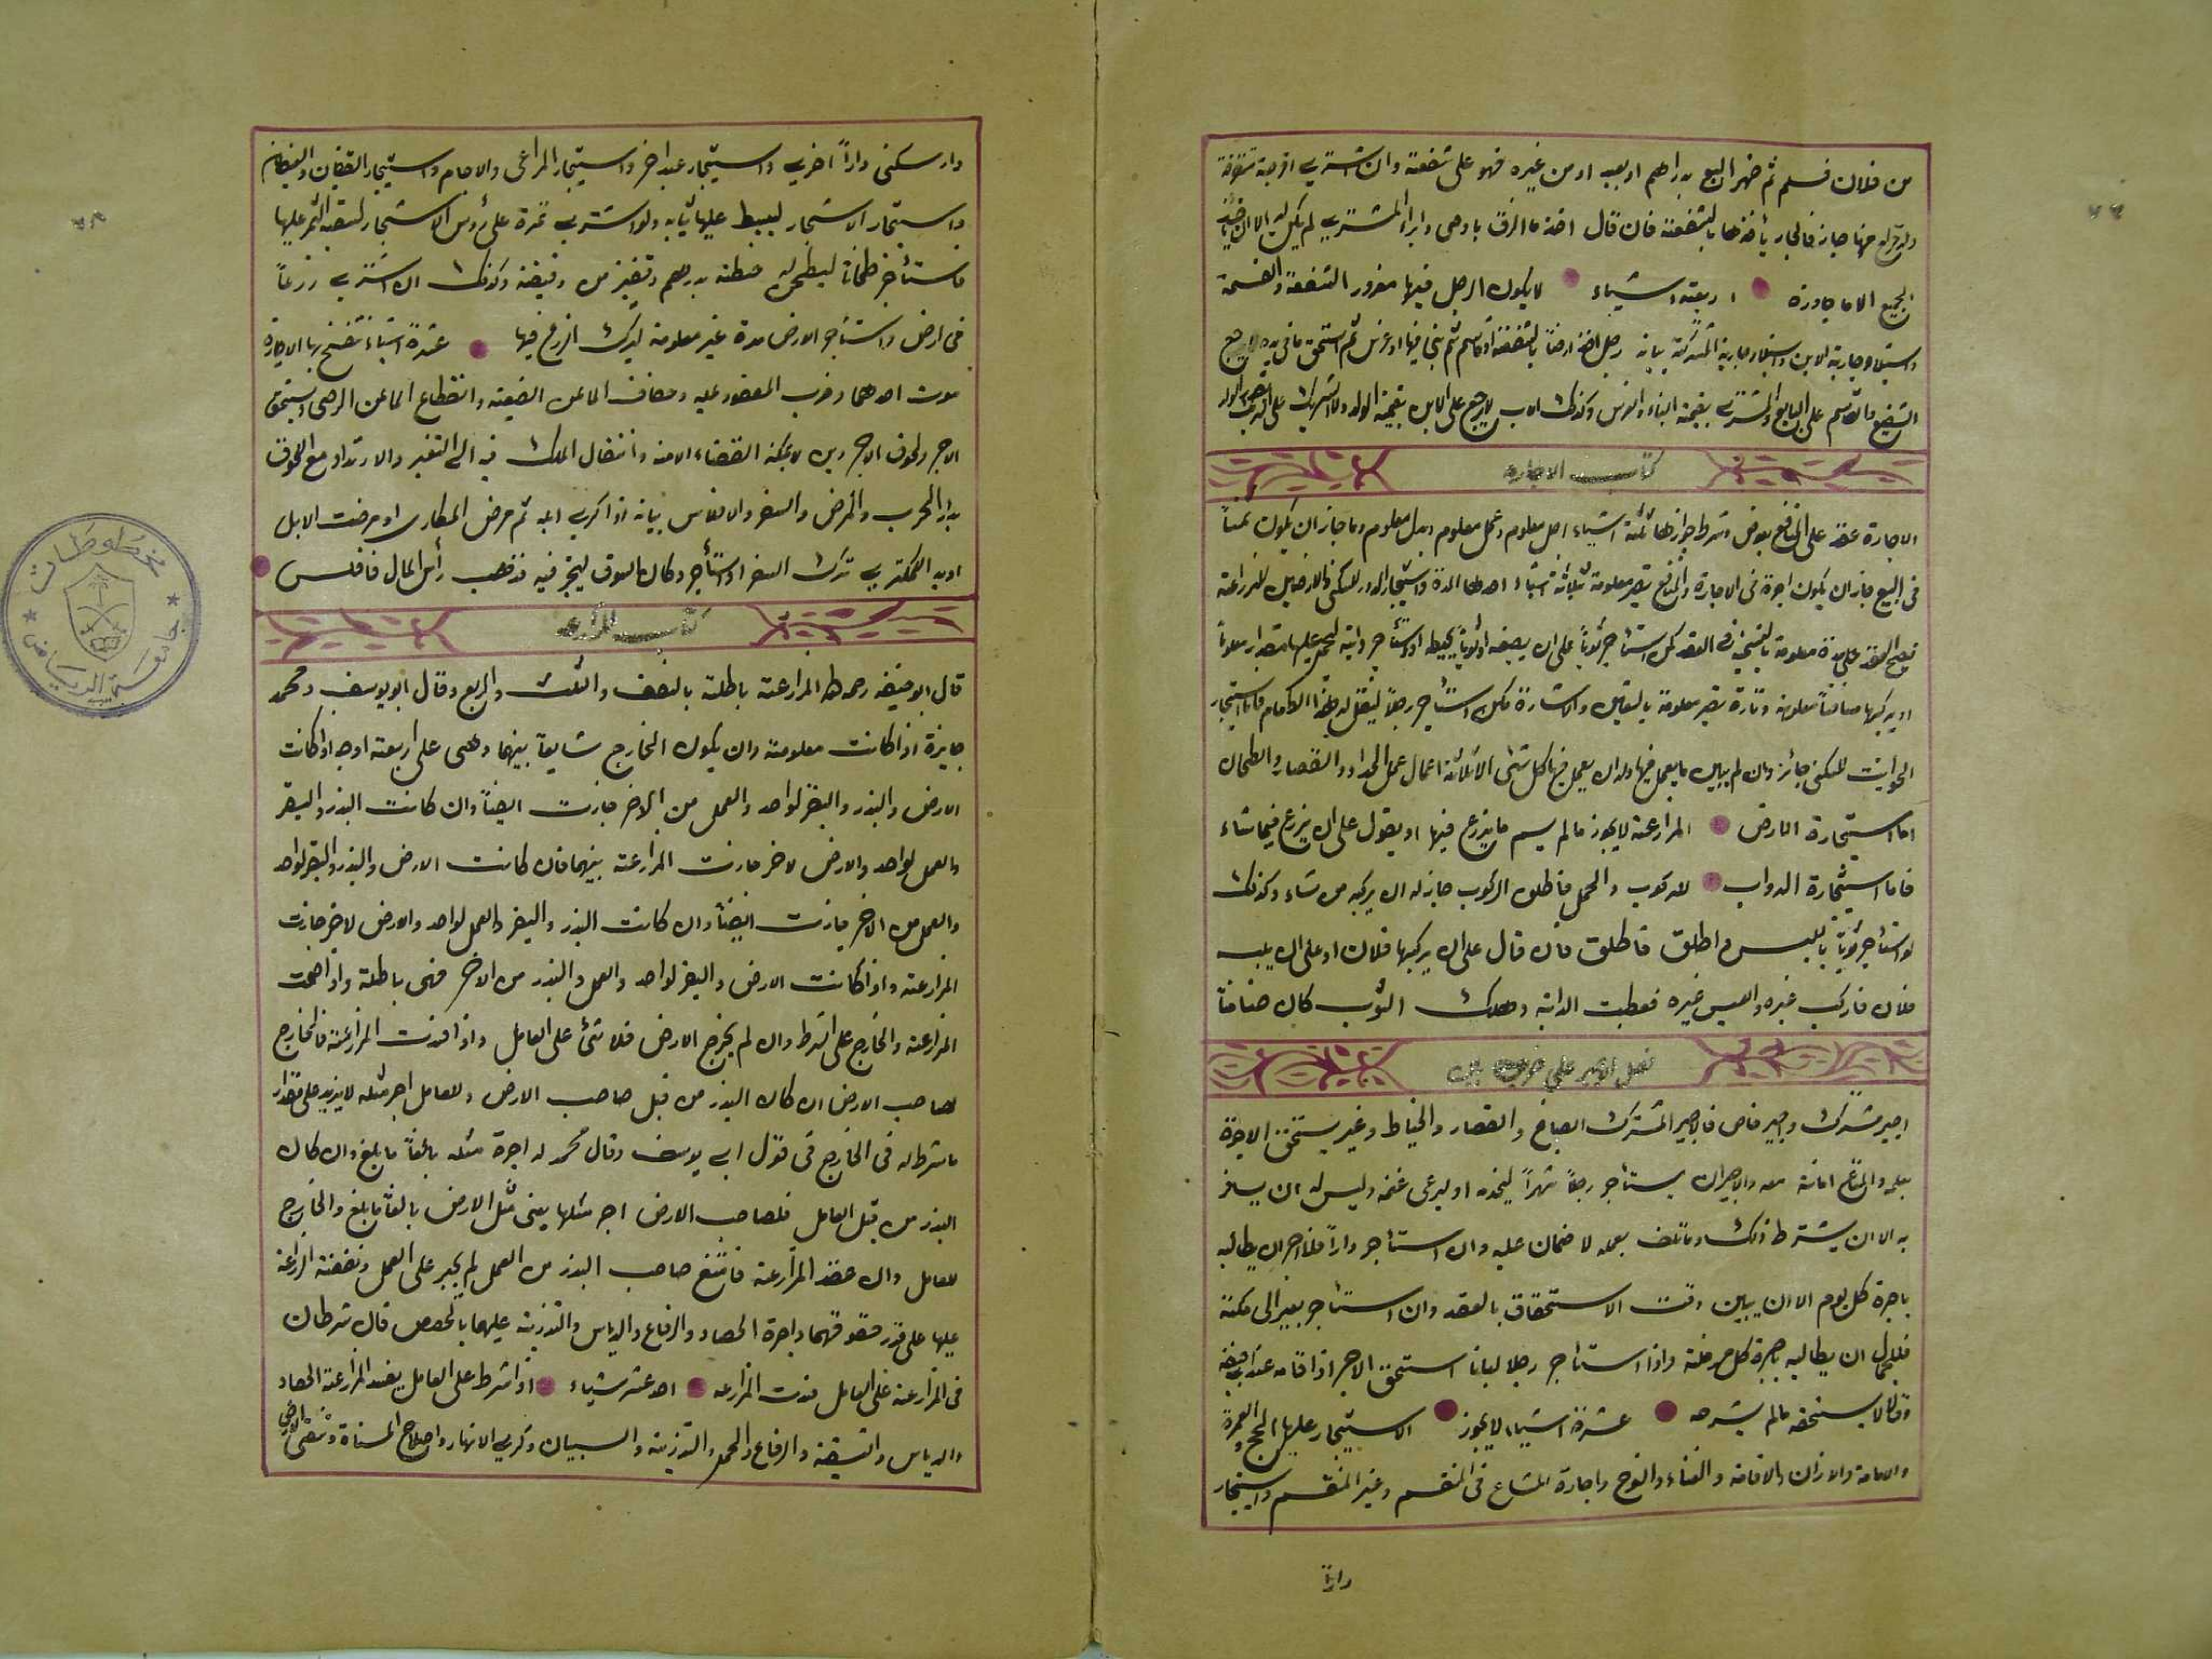 من فلان فسلم ثم ظهر البيع بدراهم او بعبد او من غيره فهو على شفعته وان اشترى اقرحة متفرقة
ياخذها بالشفعة فان قال اخذ ما الزق بارضى وابرا المشترى لم يكن له الا ان ياخذ
الجميع الا ما جاوزه اربعة اشياء لا يكون الرجل فيها مغرور الشفعة والقسمة
واستيلاد جارية الابن واستيلاد جارية المشتركة بيانه رجل اخذ ارضا بالشفعة او قاسم ثم بنى فيها او غرس ثم استحق ما فى يده لا يرجع
الشفيع والمقاسم على البايع والمشترى بقيمة البناء والغرس وكذلك الاب لا يرجع على الابن بقيمة الولد ولا الشريك على الشريك
كتاب الاجاره
الاجارة عقد على المنافع بعوض وشرط جوازها ثلثة اشياء اجل معلوم وعمل معلوم وبدل معلوم وما جاز ان يكون ثمناً
فى البيع جاز ان يكون اجرة فى الاجارة والمنافع تصير معلومة بثلاثة اشياء احدها المدة واستيجار الدور للسكنى والارضين للزراعة
فيصح العقد على مدة معلومة بالتسمية فى العقد كمن استأجر ثوباً على ان يصبغه او ثوباً يخيطه او استأجر دابة ليحمل عليها مقدارا معلوماً
او يركبها مسافتاً معلومة وتارة تصير معلومة بالتعيين والاشارة كمن استأجر رجلاً لينقل له هذا الطعام فاما استيجار
الحوانيت للسكنى جائز وان لم يبين ما يعمل فيها وله ان يعمل فيها كل شئ الا ثلاثة اعمال عمل الحداد والقصار والطحان
اما استيجارة الارض المزارعة لا يجوز مالم يسم ما يزرع فيها او يقول على ان يزرع فيها شاء
فاما استيجارة الدواب للركوب والحمل فاطلق الركوب جاز له ان يركبها من شاء وكذلك
لو استأجر ثوباً باللبس واطلق فاطلق فان قال على ان يركبها فلان او على ان يلبسه
فلان فاركب غيره والبس غيره فعطبت الدابة وهلك الثوب كان ضامناً
فصل الاجير على ضربين
اجير مشترك واجير خاص فالاجير المشترك الصباغ والقصار والخياط وغير يستحق الاجرة
بعمله والمتاع امانة معه والاجير ان يستأجر رجلاً شهراً ليخدمه او ليرعى غنمه وليس له ان يسافر
به الا ان يشترط ذلك وما تلف بعمله لا ضمان عليه وان استأجر داراً فللآجر ان يطالبه
باجرة كل يوم الا ان يبين وقت الاستحقاق بالعقد وان استأجر بعير الى مكة
فللجمال ان يطالبه باجرة كل مرحلة واذا استأجر رجلا لبانا استحق الاجر اذا اقامه عند ابى حنيفة
وقالا لا يستحقه مالم يشرجه عشرة اشياء لا يجوز الاستيجار عليها الحج والعمرة
والامامة والاذان والاقامة والغناء والنوح واجارة المشاع فى المنقسم وغير المنقسم واستيجار
داراً
دار سكنى داراً اخرى واستيجار عبد اخر واستيجار المراعى والاجام واستيجار
واستيجار الاشجار ليبسط عليها ثيابه ولو اشترى ثمرة على رؤس الاشجار لتبقية الثمر عليها
واستأجر طحانا ليطحن له حنطة بدرهم وقفيز من دقيقة وكذلك ان اشترى زرعاً
فى ارض واستأجر الارض مدة غير معلومة ليدرك الزرع فيها عشرة اشياء تفسخ بها الاجارة
موت احدهما وخرب المعقود عليه وجفاف الماء عن الضيعة وانقطاع الماء عن الرحى
الاجر ولحوق الاجر دين لا يمكنه القضاء الا منه وانتقال الملك فيه الى الغير والارتداد مع اللحوق
بدار الحرب والمرض والسفر والافلاس بيانه اذا اكرى ابله ثم مرض المكارى او مرضت الابل
او بدا للمكترى ترك السفر او استأجر دكان بالسوق ليتجر فيه فذهب رأس المال فافلس
كتاب المزارعه
قال ابو حنيفة رحمه الله المزارعة باطلة بالنصف والثلث والربع وقال ابو يوسف ومحمد
جايزة اذا كانت معلومة وان يكون الخارج شايعاً بينهما وهى على اربعة اوجه اذا كانت
الارض والبذر والبقر لواحد والعمل من الاخر جازت ايضاً وان كانت البذر والبقر
والعمل لواحد والارض لاخر جازت المزارعة بينهما فان كانت الارض والبذر والبقر لواحد
والعمل من الاخر جازت ايضاً وان كانت البذر والبقر والعمل لواحد والارض لاخر جازت
المزارعة واذا كانت الارض والبقر لواحد والعمل والبذر من الاخر فهى باطلة واذا صحت
المزارعة والخارج على الشرط وان لم يخرج الارض فلا شئ على العامل واذا فسدت المزارعة فالخارج
لصاحب الارض ان كان البذر من قبل صاحب الارض وللعامل اجر مثله لا يزيد على مقدار
ما شرط له فى الخارج فى قول ابى يوسف وقال محمد له اجرة مثله بالغاً ما بلغ وان كان
البذر من قبل العامل فلصاحب الارض اجر مثلها يعنى مثل الارض بالغاً ما بلغ والخارج
للعامل وان عقد المزارعة فامتنع صاحب البذر من العمل لم يجبر على العمل ونفقة الزراعة
عليها على قدر حقوقهما واجرة الحصاد والرفاع والدياس والتذرية عليهما بالحصص فان شرطاه
فى المزارعة على العامل فسدت المزارعه احد عشر شياء اذا شرط على العامل يفسد المزارعة الحصاد
والدياس والتنقية والرفاع والحمل والتذرية والسبيان وكرى الانهار واصلاح المسناة
مخطوطات
جامعة الرياض